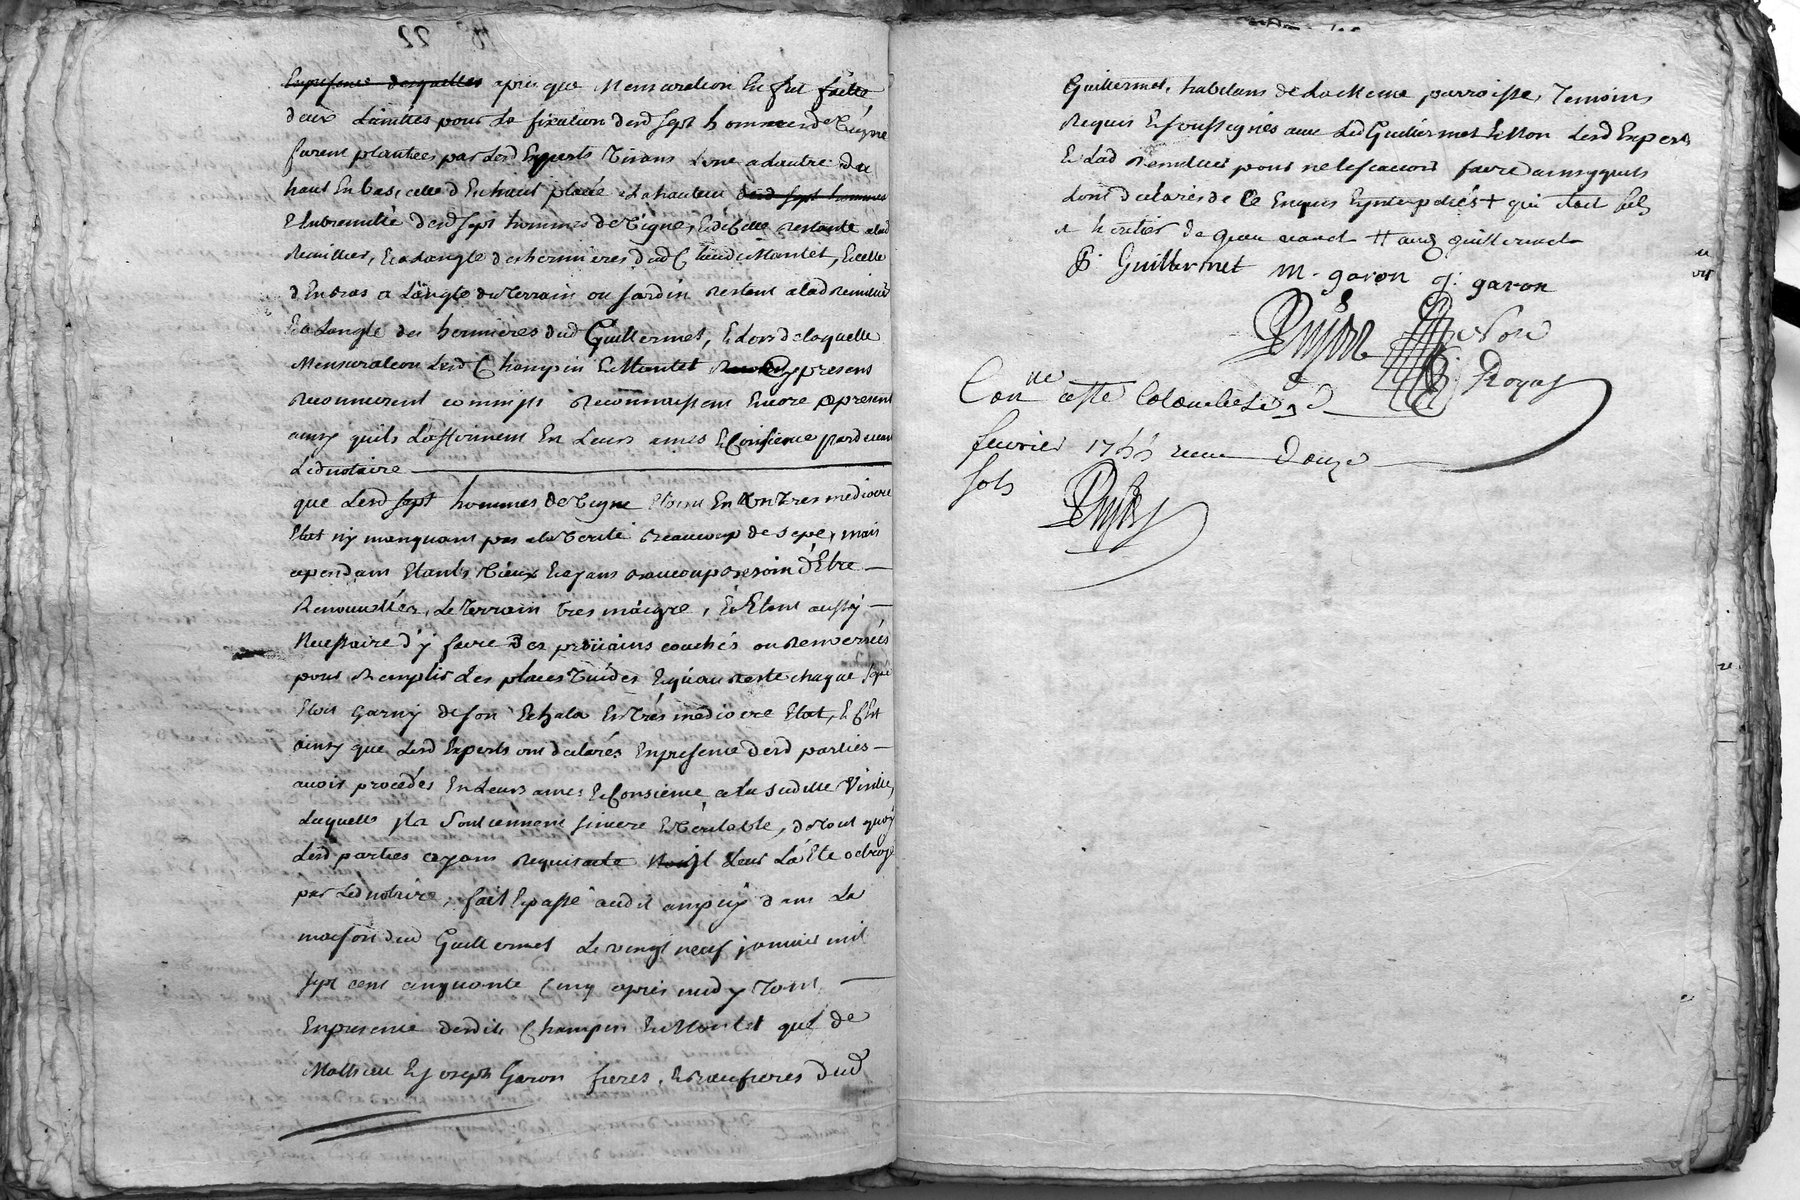 22
En presence desquelles apres que Mensuration En fut faitte
deux Limittes pour La fixation desd Sept hommes de Vigne
furent plantées par Lesd Experts Tirans Lune a Lautre du
haut En bas, celle d'En haut placée a La hauteur desd sept hommes
Extremitté desd Sept hommes de Vigne, Et de Celle restante alad
Et a Langle des hermieres dud Claude Mantet, Et celle
d'En bas a L'angle du Terrain ou Jardin restant a lad
Et a Langle des hermieres dud Guillermet, Et Lors de laquelle
Mensuration Lesd Champin Et Mantet presens
reconnurent comm'jls reconnoissent Encore apresent
ainsy quils L'affirment En Leurs ames Et Consience pardevant
Led notaire
que Lesd Sept hommes de Vigne Etoint En Un Tres mediocre
Etat n'y manquant pas a la Verité Beaucoup de sepe, mais
cependant Etants Vieux Et ayans Beaucoup Besoin d'Etre
Renouvellés, Le Terrain tres maigre, Et Etant aussy
Necessaire d'y faire Des provains couchés ou renversés
pour Remplir Les places Vuides Et qu'au reste chaque sepe
Etoit Garny de son Echala En Trés mediocre Etat, Et C'Est
ainsy que Lesd Experts ont declarés En presence desd parties
avoir procédés En Leurs ames Et Consience a La susditte Visitte,
Laquelle jls Soutiennent sincere Et Veritable, de Tout quoy
Lesd parties ayans requis acte jl Leur La Ete octroyé
par Led notaire, fait Et passé audit ampuy dans La
maison dud Guillermet Le vingt neuf janvier mil
sept cent cinquante Cinq apres midy Tout
En presence desdits Champin Et Mantet que de
Mathieu Et Joseph Garon freres, Et Beaufreres dud
Guillermet, habitans de La Meme parroisse, Temoins
Requis Et soussignés avec Led Guillermet Et Non Lesd Experts
Et Lad pour ne le scavoir faire ainsy quils
L'ont declarés de Ce Enquis Et jnterpellés + qui etoit fils
et heritier de # aud guillermet
P. Guillermet m. garon j. garon
Con.lle acte Colombe Le
fevrier 1755 receu Douze
sols